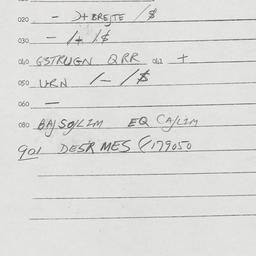 020 - )+ BREJTE /$
030 - /+ /$
040 GSTRUGN QRR +
050 URN /- /$
060 -
080 BAJSO/LIM EQ CA/LIM
901 DESR MES (/179050